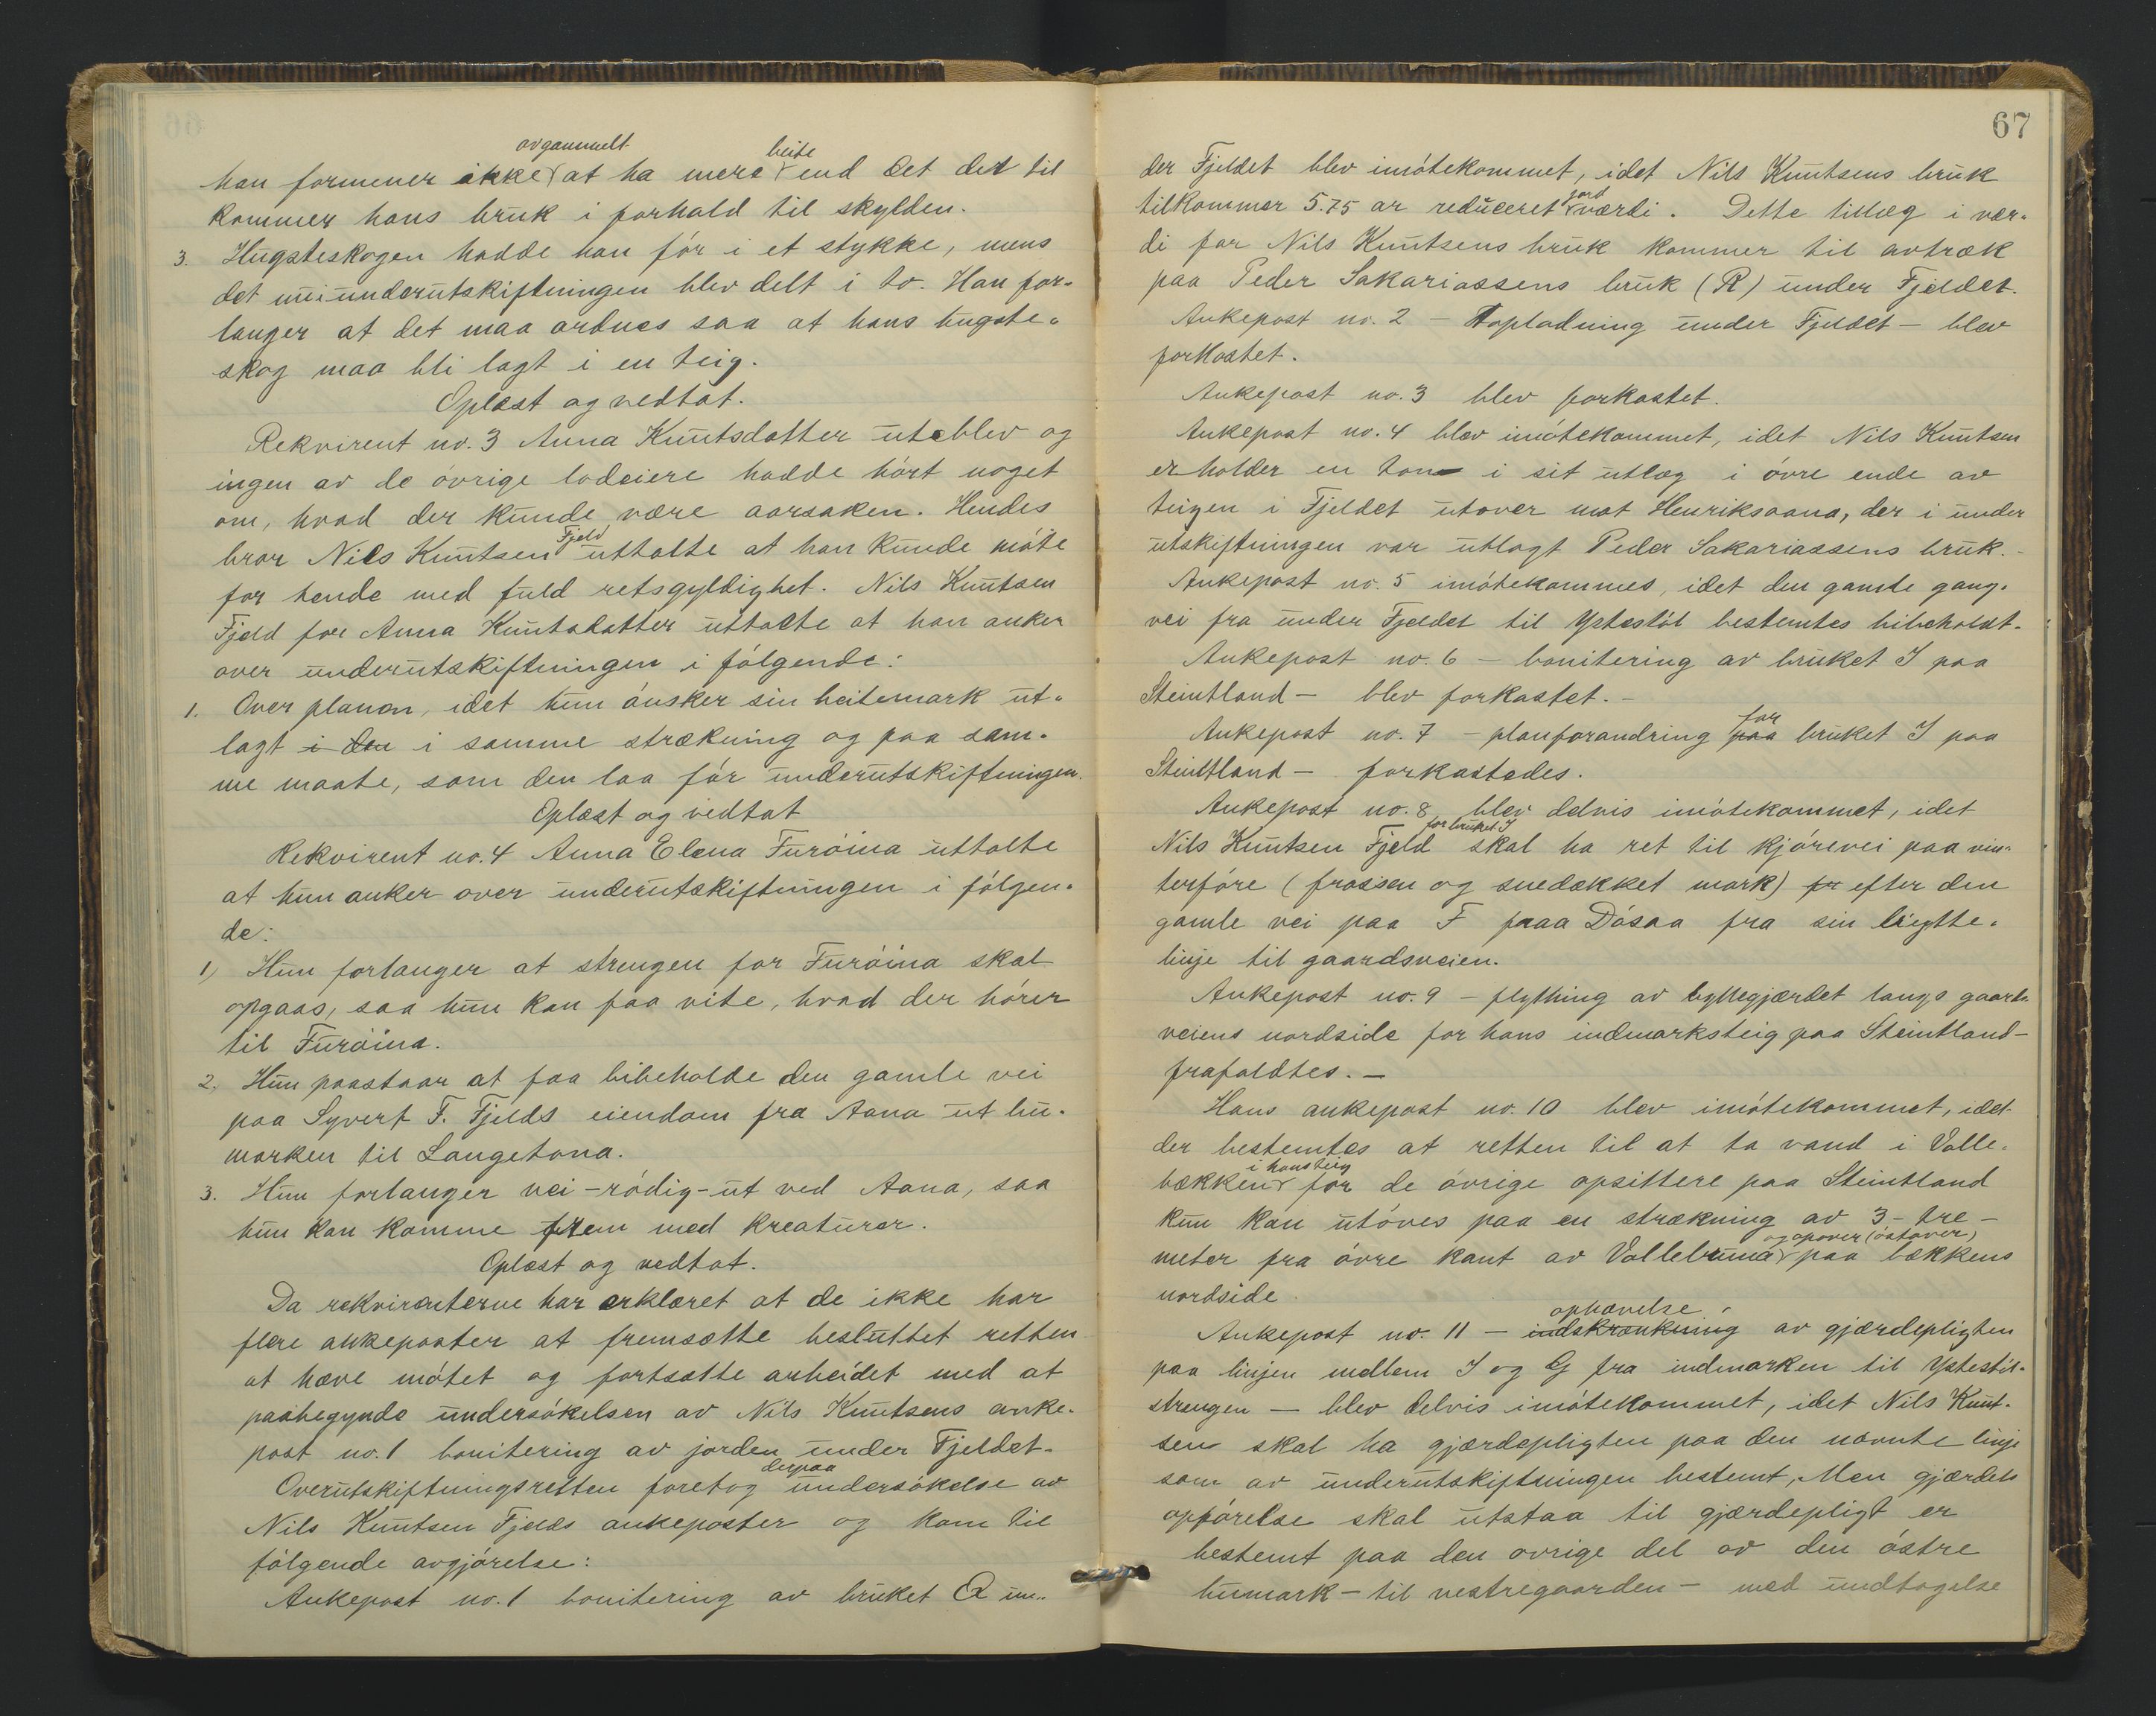 han formener ikke avgammelt at ha mere beite end det det til
kommer hans bruk i forhold til skylden.
3. Hugsteskogen hadde han för i et stykke, mens
det underutskiftningen blev delt i to. Han for-
langer at det maa ordnes saa at hans hugste-
skog maa bli lagt i en teig.
Oplæst og vedtat.
Rekvirent no. 3 Anna Knutsdatter uteblev og
ingen av de övrige lodeiere hadde hört noget
om, hvad der kunde være aarsaken. Hendes
bror Nils Knutsen Fjeld uttalte at han kunde möte
for hende med fuld retsgyldighet. Nils Knutsen
Fjeld for Anna Knutsdatter uttalte at han anker
over underutskiftningen i fölgende:
1. Over planen, idet hun önsker sin beitemark ut-
lagt i den i samme strækning og paa sam-
me maate, som den laa för underutskiftningen.
Oplæst og vedtat
Rekvirent no. 4 Anna Elena Furöina uttalte
at hun anker over underutskiftningen i fölgen-
de:
1) Hun forlanger at strengen for Furöina skal
opgaas, saa hun kan faa vite, hvad der hörer
til Furöina.
2. Hun paastaar at faa bibeholde den gamle vei
paa Syvert F. Fjelds eiendom fra Aana ut bu-
marken til Langetona.
3. Hun forlanger vei - rödig - ut ved Aana, saa
hun kan komme frem med kreaturer.
Oplæst og vedtat.
Da rekvirenterne har erklæret at de ikke har
flere ankeposter at fremsætte besluttet retten
at hæve mötet og fortsætte arbeidet med at
paabegynde undersökelsen av Nils Knutsens anke-
post no. 1 bonitering av jorden under Fjeldet.
Overutskiftningsretten foretog derpaa undersökelse av
Nils Knutsen Fjelds ankeposter og kom til
fölgende avgjörelse:
Ankepost no. 1 bonitering av bruket Q un-
67
der Fjeldet blev imötekommet, idet Nils Knutsens bruk
tilkommer 5.75 ar reduceret jord værdi. Dette tillæg i vær-
di for Nils Knutsens bruk kommer til avtræk
paa Peder Sakariassens bruk (R) under Fjeldet.
Ankepost no. 2 - opladning under Fjeldet - blev
forkastet.
Ankepost no. 3 blev forkastet.
Ankepost no. 4 blev imötekommet, idet Nils Knutsen
erholder en tone i sit utlæg i övre ende av
teigen i Fjeldet utover mot Henriksaana, der i under
utskiftningen var utlagt Peder Sakariassens bruk. -
Ankepost no. 5 imötekommes, idet den gamle gang-
vei fra under Fjeldet til Ytstestöl bestemtes bibeholdt.
Ankepost no. 6 - bonitering av bruket I paa
Steintland - blev forkastet. -
Ankepost no. 7 - planforandring paa for bruket I paa
Steintland - forkastedes.
Ankepost no. 8 blev delvis imötekommet, idet
Nils Knutsen Fjeld for bruket I skal ha ret til kjörevei paa vin-
terföre (frossen og snedækket mark) fr efter den
gamle vei paa F paa Dösaa fra sin
linje til gaardsveien.
Ankepost no. 9 - flytning av gjærdet langs gaards
veiens nordside for hans indmarksteig paa Steintland -
frafaldtes. -
Hans ankepost no. 10 blev imötekommet, idet
der bestemtes at retten til at ta vand i Volle-
bækken i hans teig for de övrige opsittere paa Steintland
kun kan utöves paa en strækning av 3 - tre -
meter fra övre kant av Vollebruna og opover (östover) paa bækkens
nordside.
Ankepost no. 11 - indskrænkning ophævelse av gjærdepligten
paa linjen mellem I og G fra indmarken til Ytstestöl-
strengen - blev delvis imötekommet, idet Nils Knut-
sen skal ha gjærdepligten paa den nævnte linje
som av underutskiftningen bestemt, Men gjærdets
opförelse skal utstaa til gjærdepligt er
bestemt paa den övrige del av den östre
bumark - til vestregaarden - med undtagelse